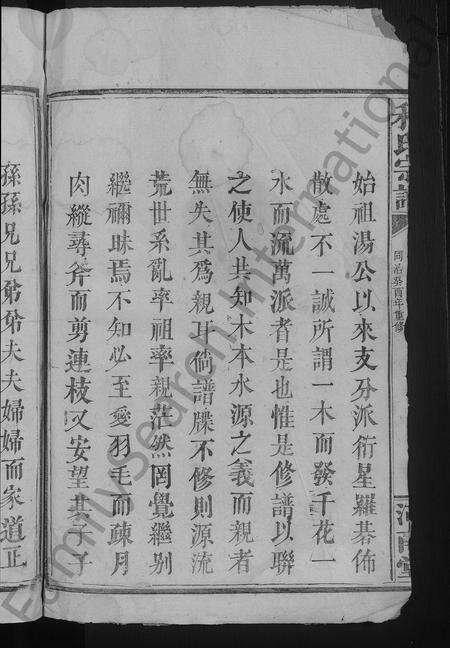 氏宗譜
同治癸酉年重修
堂
始祖湯公以來支分派衍星羅碁佈
散處不一誠所謂一木而發千花一
水而流萬派者是也惟是修譜以聯
之使人共知木本水源之義而親者
無失其爲親耳倘譜牒不修則源流
荒世系亂率祖率親茫然罔覺繼别
繼禰昧焉不知必至愛羽毛而疎月
肉縱尋斧而剪連枝又安望其子子
孫孫兄兄弟弟夫夫婦婦而家道正
FamilySearch International